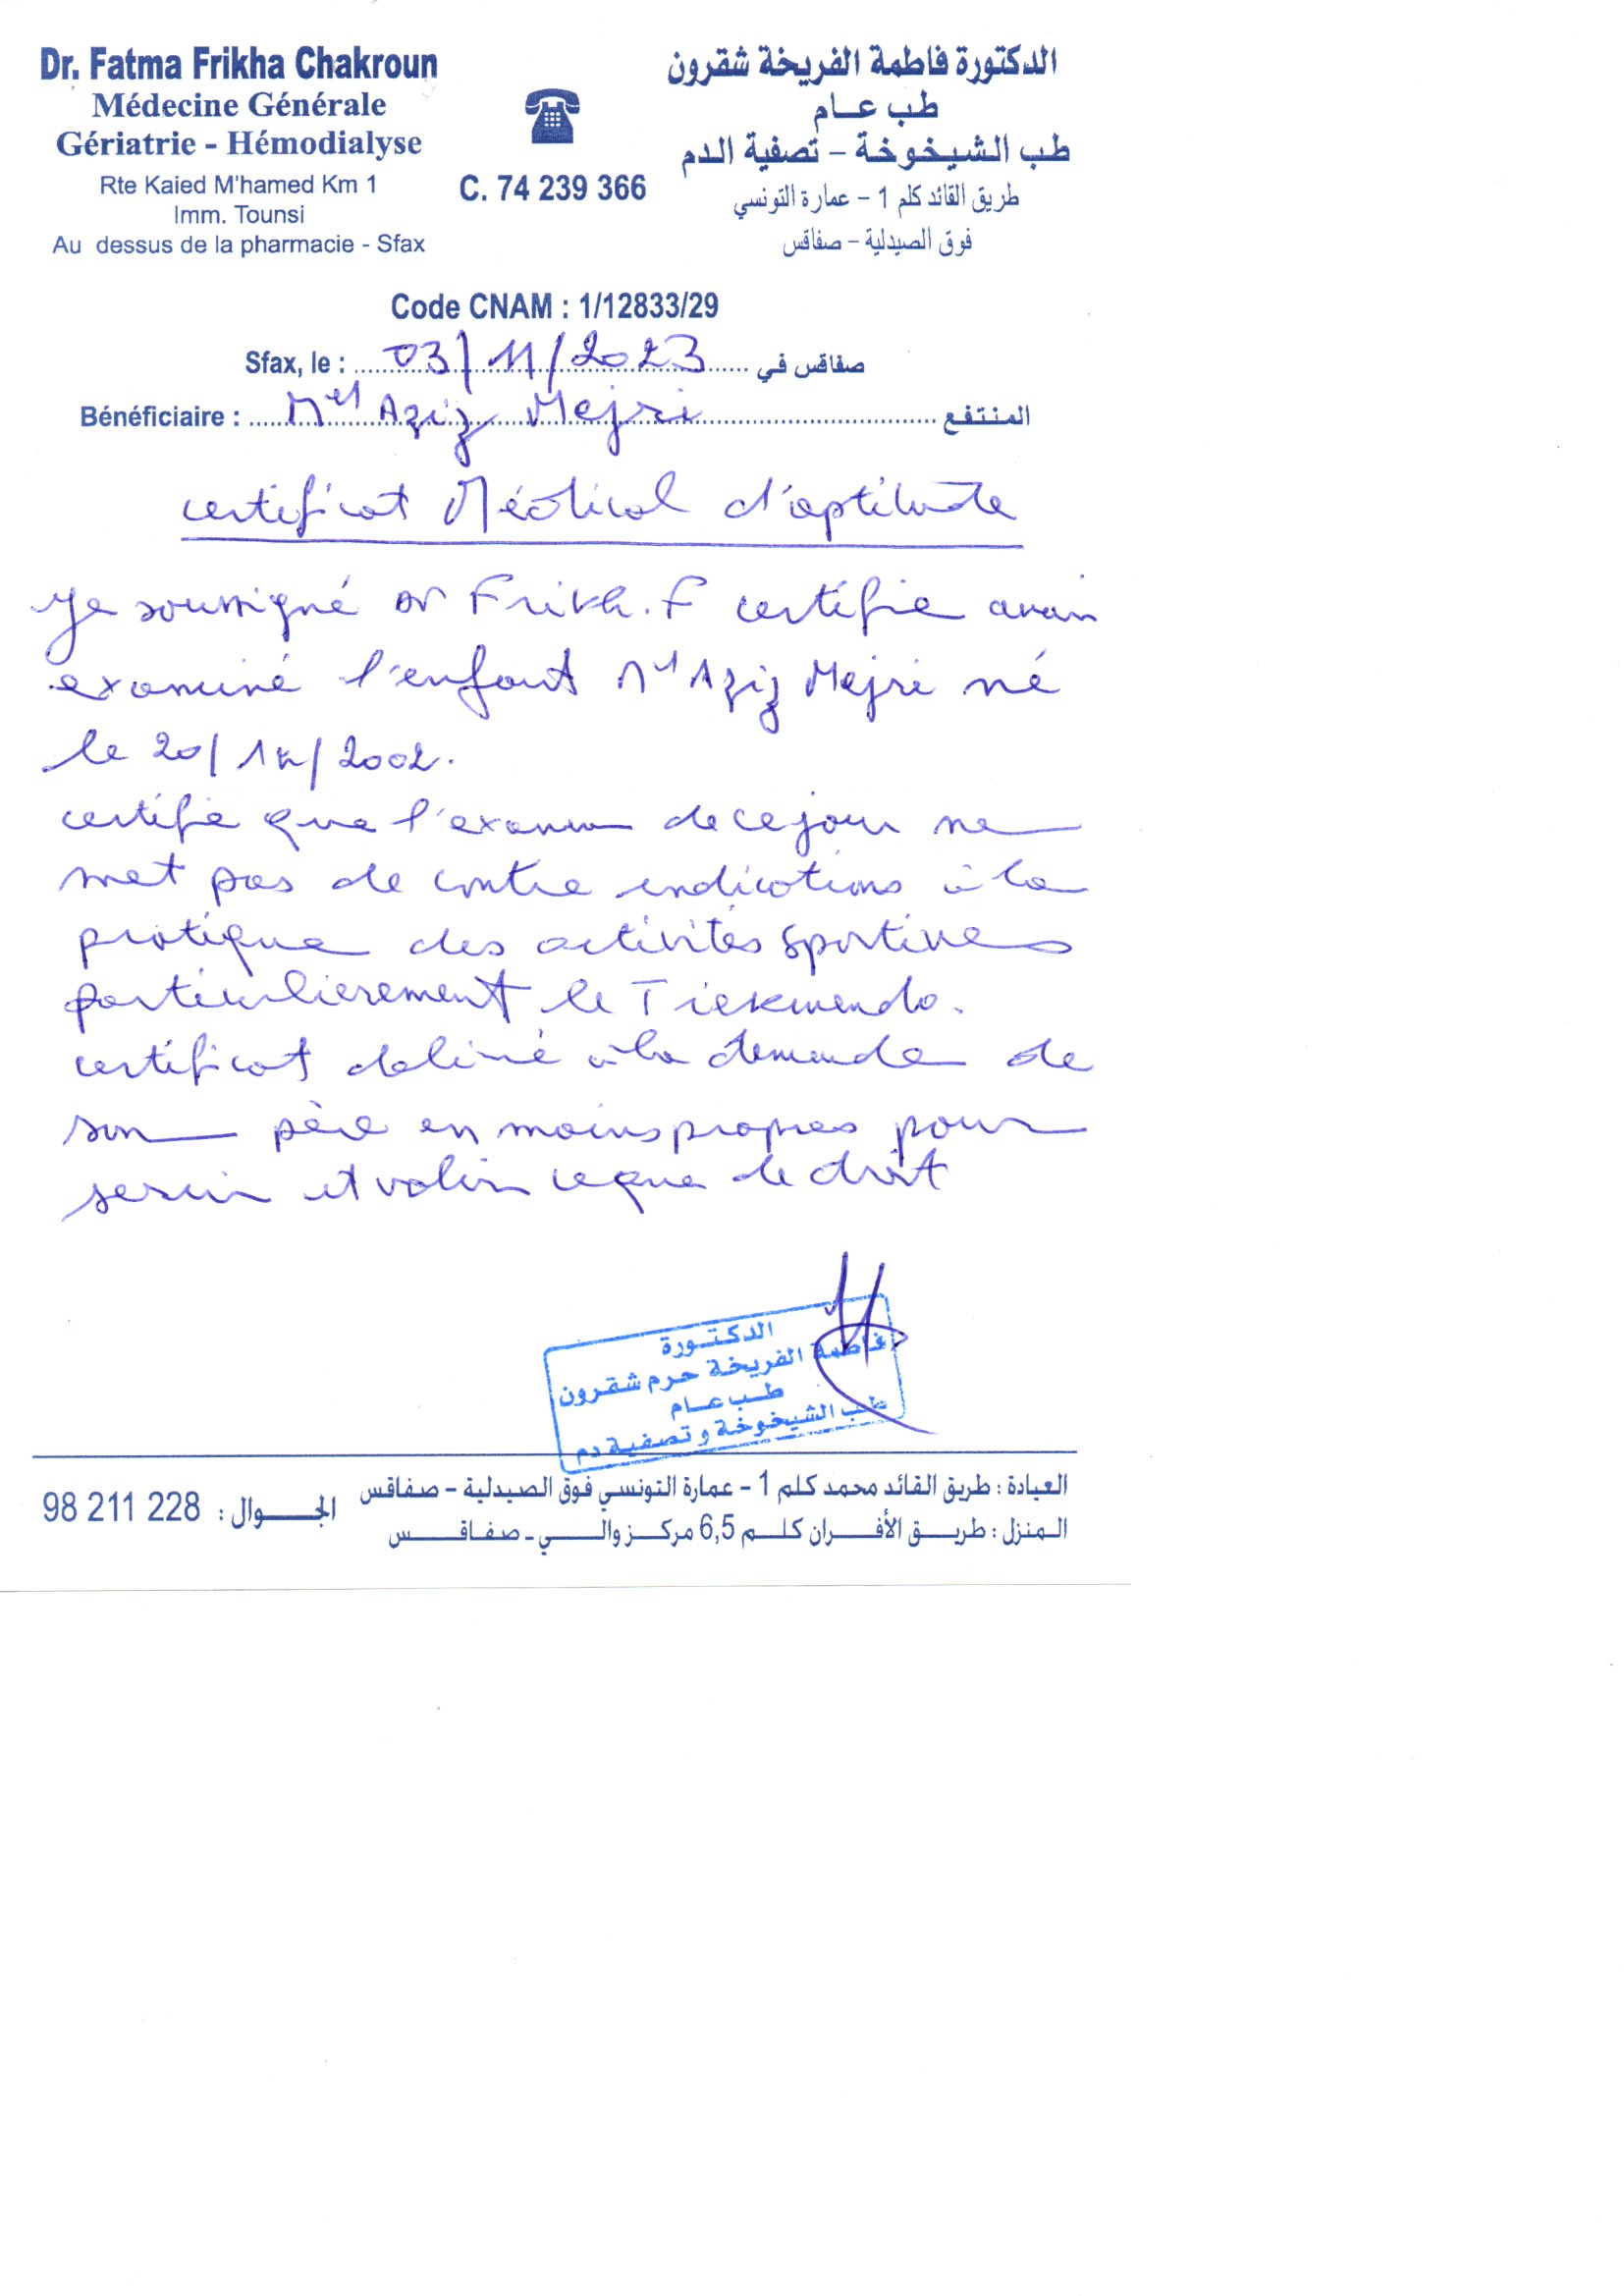 Dr. Fatma Frikha Chakroun
Médecine Générale
Gériatrie - Hémodialyse
Rte Kaied M'hamed Km 1
Imm. Tounsi
Au dessus de la pharmacie - Sfax
C. 74 239 366
الدكتورة فاطمة الفريخة شقرون
طب عـام
طب الشيخوخة - تصفية الدم
طريق القائد كلم 1 - عمارة التونسي
فوق الصيدلية - صفاقس
Code CNAM : 1/12833/29
Sfax, le : 03/11/2023 صفاقس في
Bénéficiaire : Med Aziz Mejri المنتفع
certificat Médical d'aptitude
Je soussigné Dr Frikh. F certifie avoir
examiné l'enfant Aziz Mejri né
le 20/ /2002.
certifie que l'examen de ce jour ne
met pas de contre indications à la
pratique des activités sportives
particulierement le Tiekwendo.
certificat delivré à la demande de
son père en mains propres pour
servir et valoir ce que de droit
الدكتـورة
فاطمة الفريخة حرم شقرون
طـب عـام
طب الشيخوخة و تصفية دم
العيادة : طريق القائد محمد كلم 1 - عمارة التونسي فوق الصيدلية - صفاقس
الجـــوال : 98 211 228
المنزل : طريـــق الأفـــران كلـــم 6,5 مركـــز والـــــي - صفاقـــــس